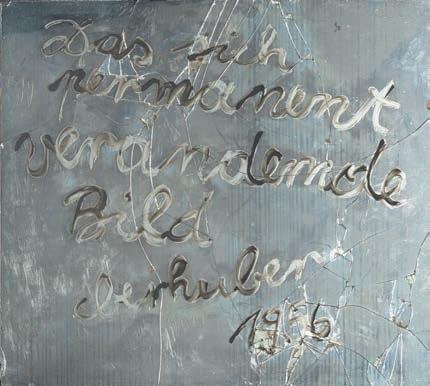 Das sich
permanent
verändernde
Bild
Oerhuber
1956